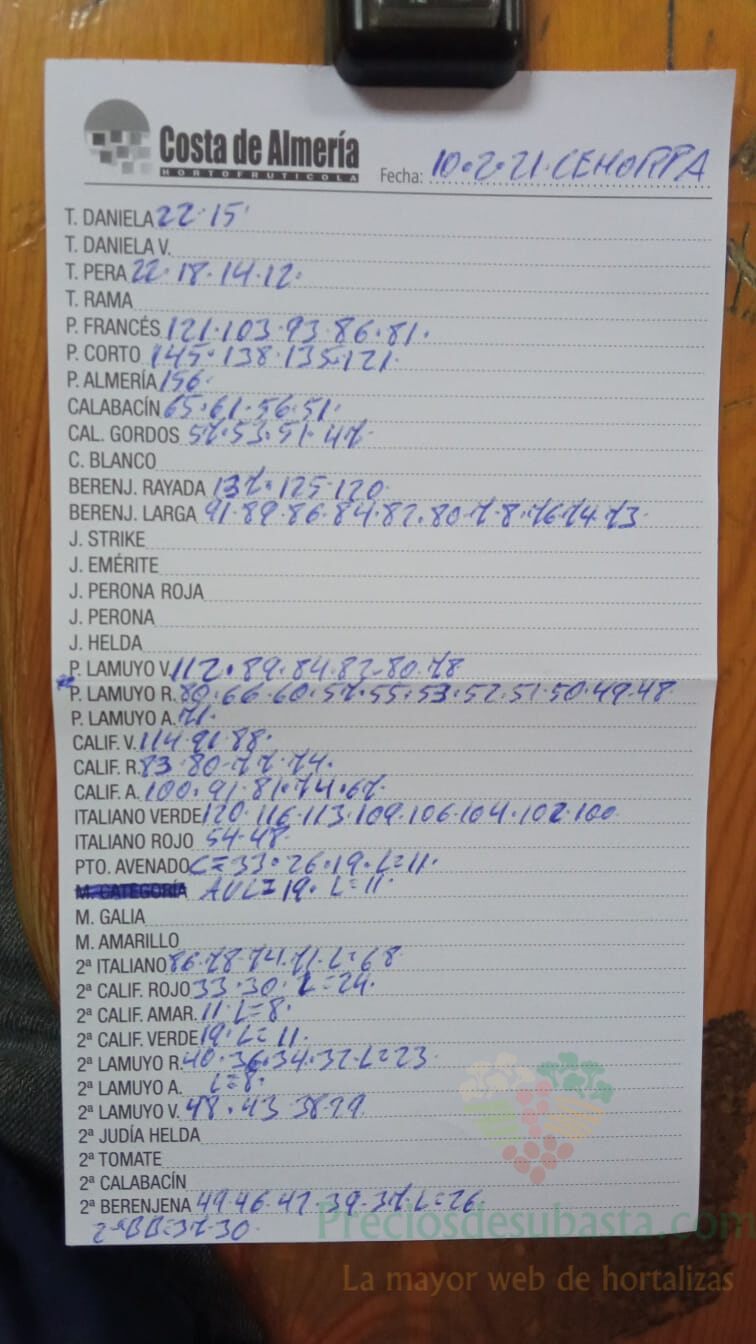 Costa de Almería
HORTOFRUTICOLA
Fecha: 10.2.21.CEHORPA
T. DANIELA 22.15
T. DANIELA V.
T. PERA 22.18.14.12.
T. RAMA
P. FRANCÉS 121.103.93.86.81.
P. CORTO 145.138.135.121.
P. ALMERÍA 156.
CALABACÍN 65.61.56.51.
CAL. GORDOS 57.53.51.47.
C. BLANCO
BERENJ. RAYADA 137.125.120
BERENJ. LARGA 91.89.86.84.82.80.78.76.74.73.
J. STRIKE
J. EMÉRITE
J. PERONA ROJA
J. PERONA
J. HELDA
P. LAMUYO V. 112.89.84.82.80.78
P. LAMUYO R. 80.66.60.57.55.53.52.51.50.49.48
P. LAMUYO A. 71.
CALIF. V. 114.91.88.
CALIF. R. 83.80.77.74.
CALIF. A. 100.91.81.74.67.
ITALIANO VERDE 120.116.113.109.106.104.102.100
ITALIANO ROJO 54.48.
PTO. AVENADO C=33.26.19.L=11.
M. CATEGORÍA AVL=19. L=11.
M. GALIA
M. AMARILLO
2ª ITALIANO 86.78.74.71.L=68
2ª CALIF. ROJO 33.30. L=24.
2ª CALIF. AMAR. 11.L=8.
2ª CALIF. VERDE 19.L=11.
2ª LAMUYO R. 40.36.34.32.L=23.
2ª LAMUYO A. L=8.
2ª LAMUYO V. 48.43.38
2ª JUDÍA HELDA
2ª TOMATE
2ª CALABACÍN
2ª BERENJENA 49.46.42.39.37.L=26.
2ªBB=37.30.
Preciosdesubasta.com
La mayor web de hortalizas